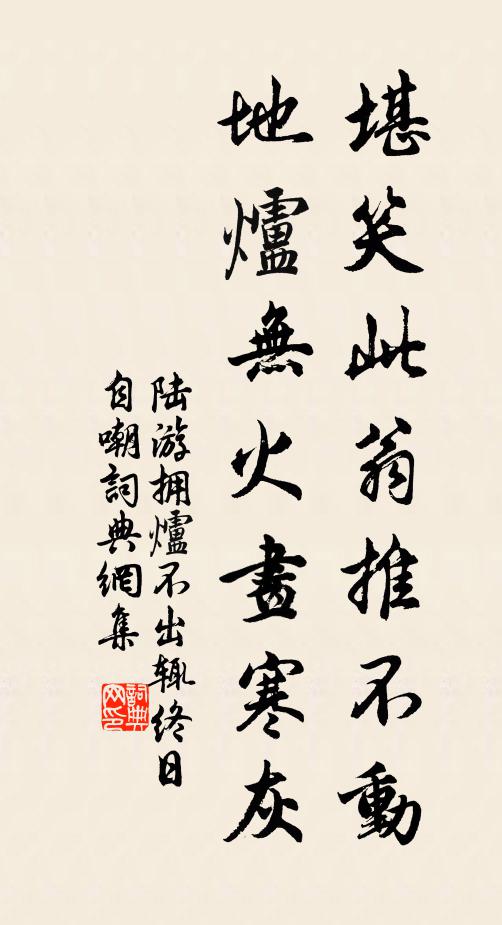 堪笑此翁推不動
地爐無火畫寒灰
陆游拥爐不出辄终日
自嘲詞典網集
詞典
网印